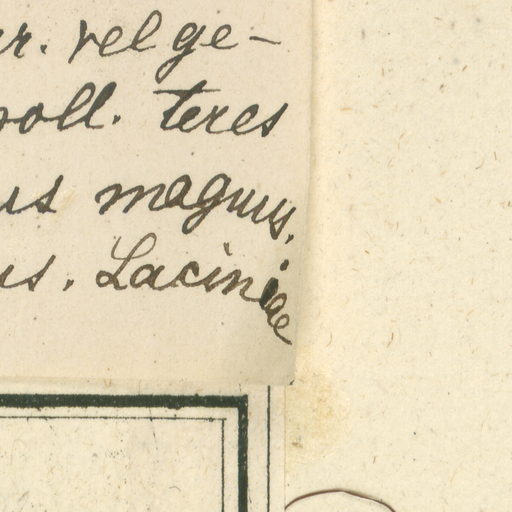 r. vel ge-
oll. teres
us magnus,
us. Laciniae